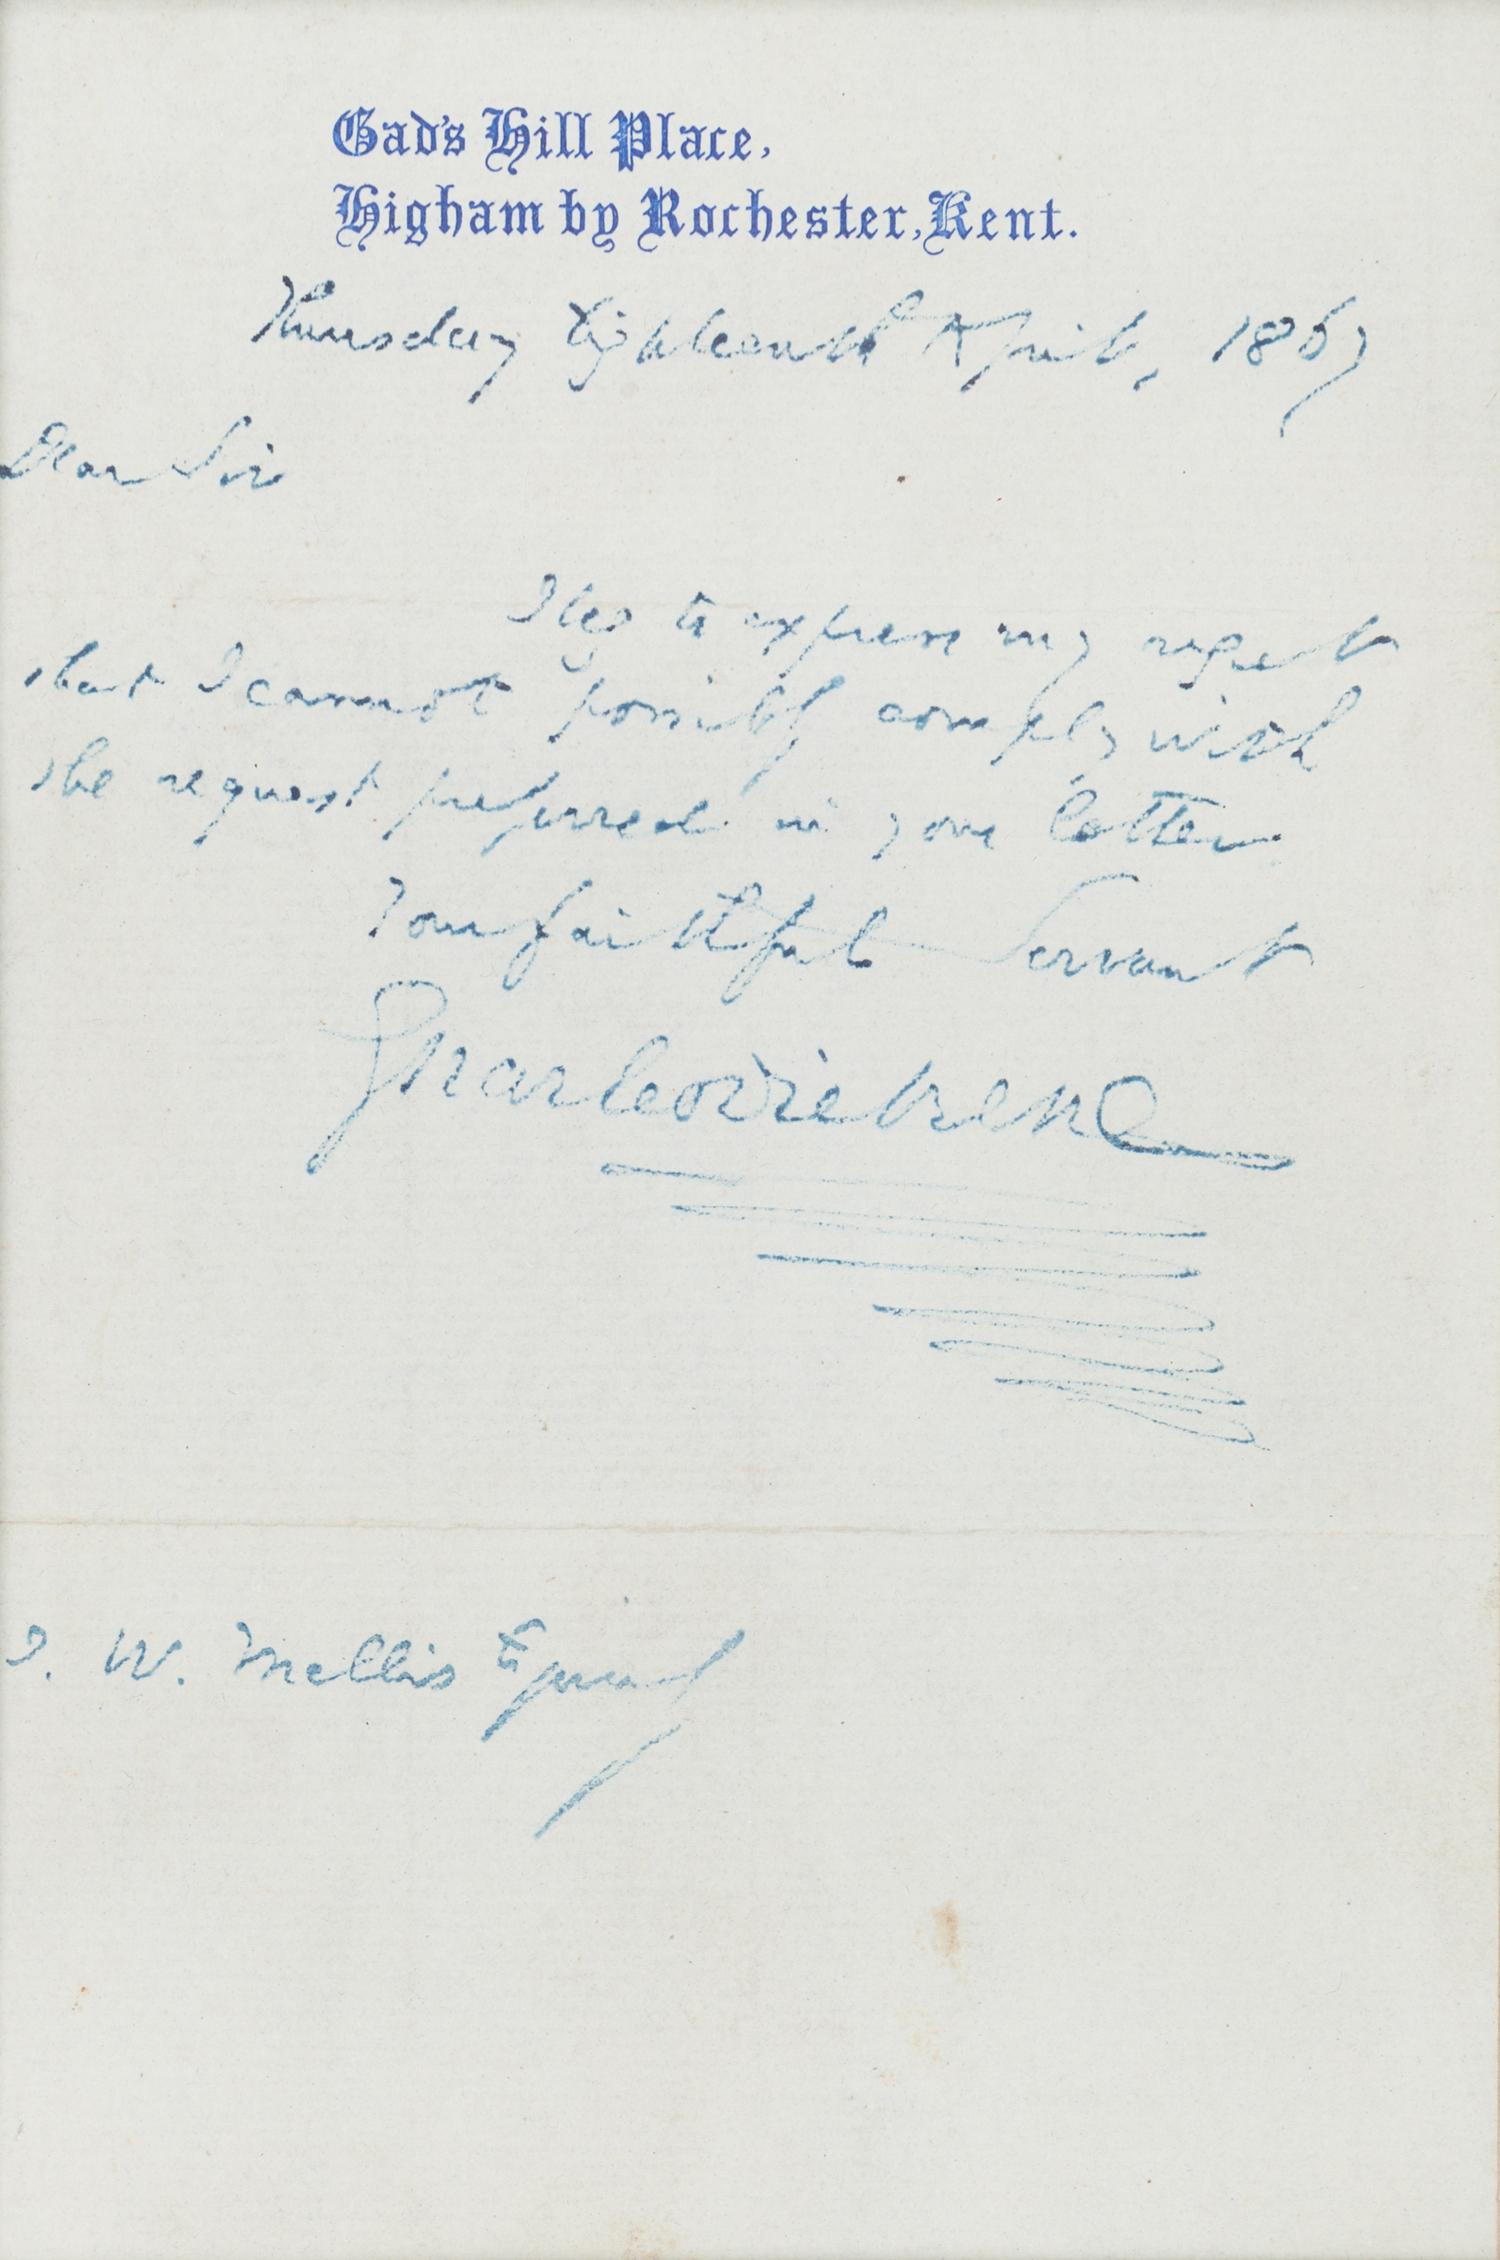 Gad's Hill Place,
Higham by Rochester, Kent.
Thursday Eighteenth April, 1867
Dear Sir
I beg to express my regret
that I cannot possibly comply with
the request preferred in your letter
Your faithful Servant
Charles Dickens
J. W. Mellis Esquire